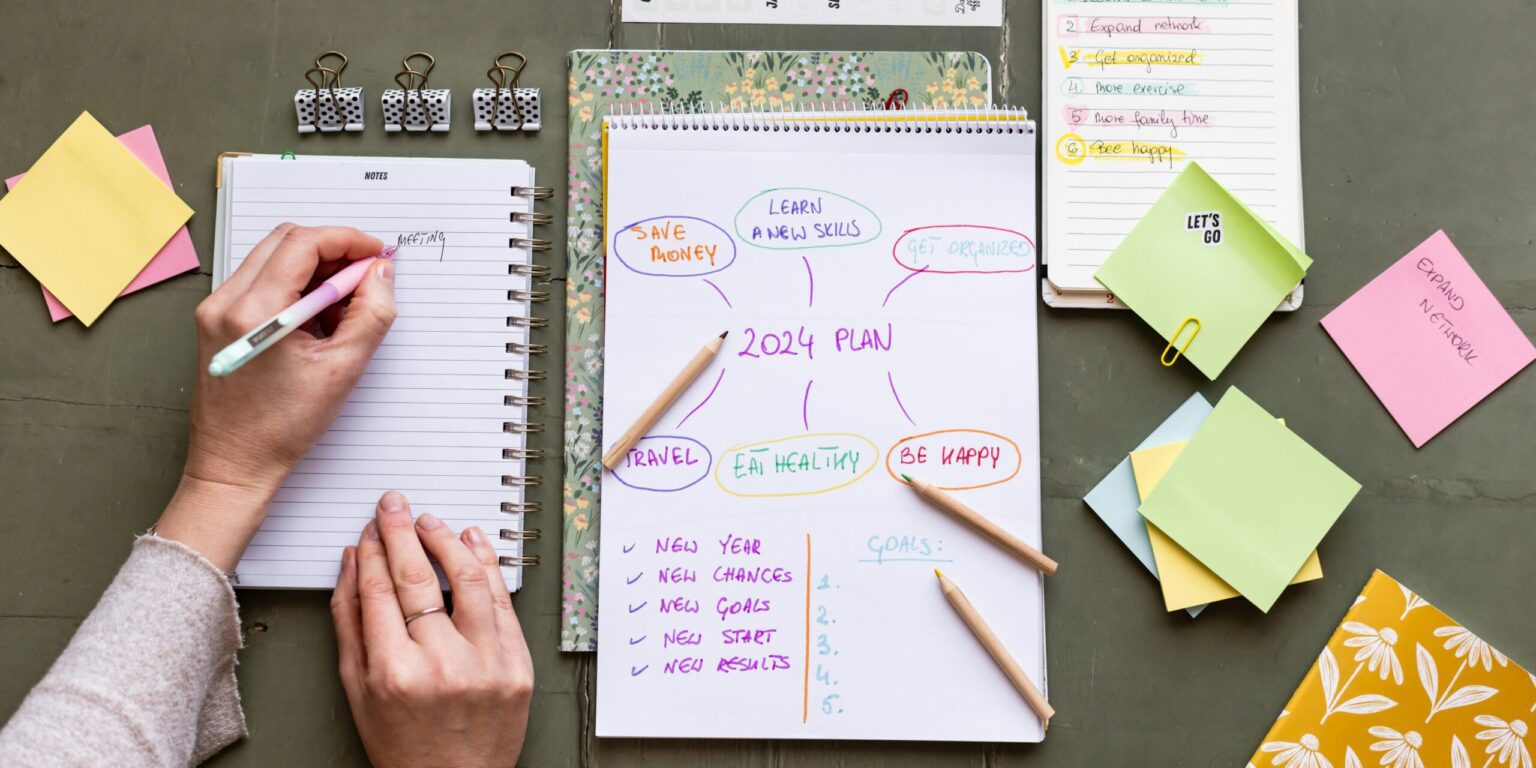 NOTES
MEETING
SAVE
MONEY
LEARN
A NEW SKILLS
GET ORGANIZED
2024 PLAN
TRAVEL
EAT HEALTHY
BE HAPPY
✓ NEW YEAR
✓ NEW CHANCES
✓ NEW GOALS
✓ NEW START
✓ NEW RESULTS
GOALS:
1.
2.
3.
4.
5.
2 Expand network
3 Get organized
4 more exercise
5 more family time
6. Bee happy
LET'S
GO
EXPAND
NETWORK